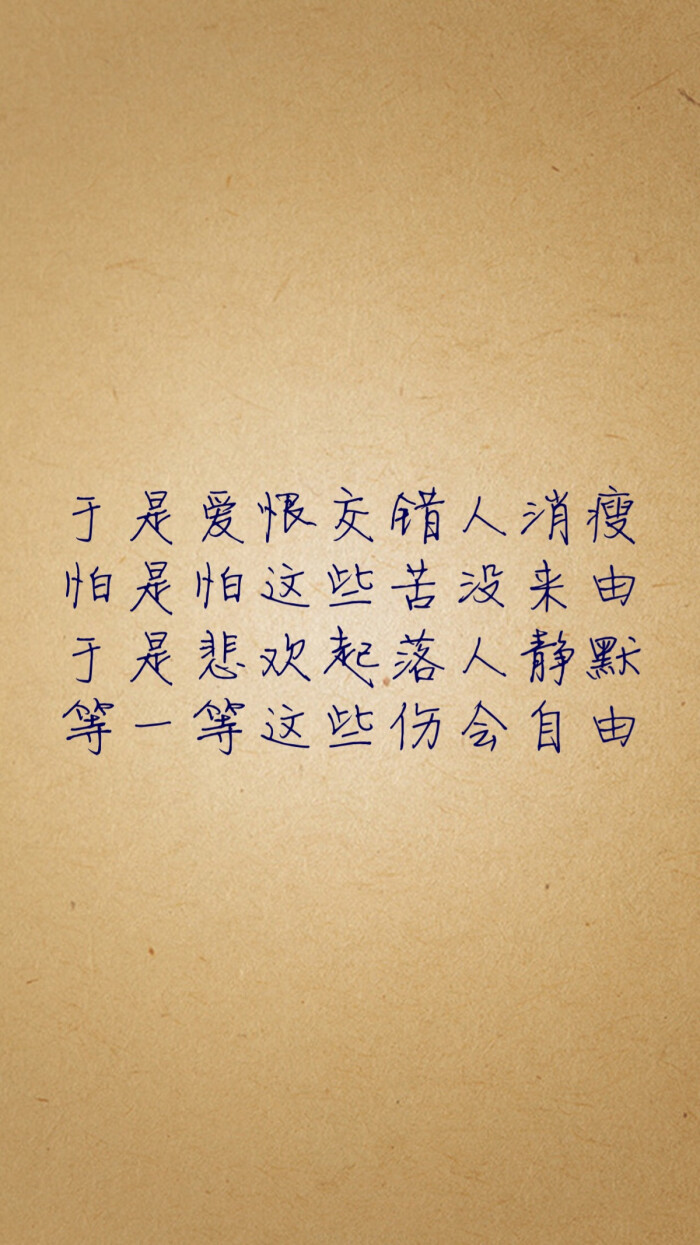 于是爱恨交错人消瘦
怕是怕这些苦没来由
于是悲欢起落人静默
等一等这些伤会自由